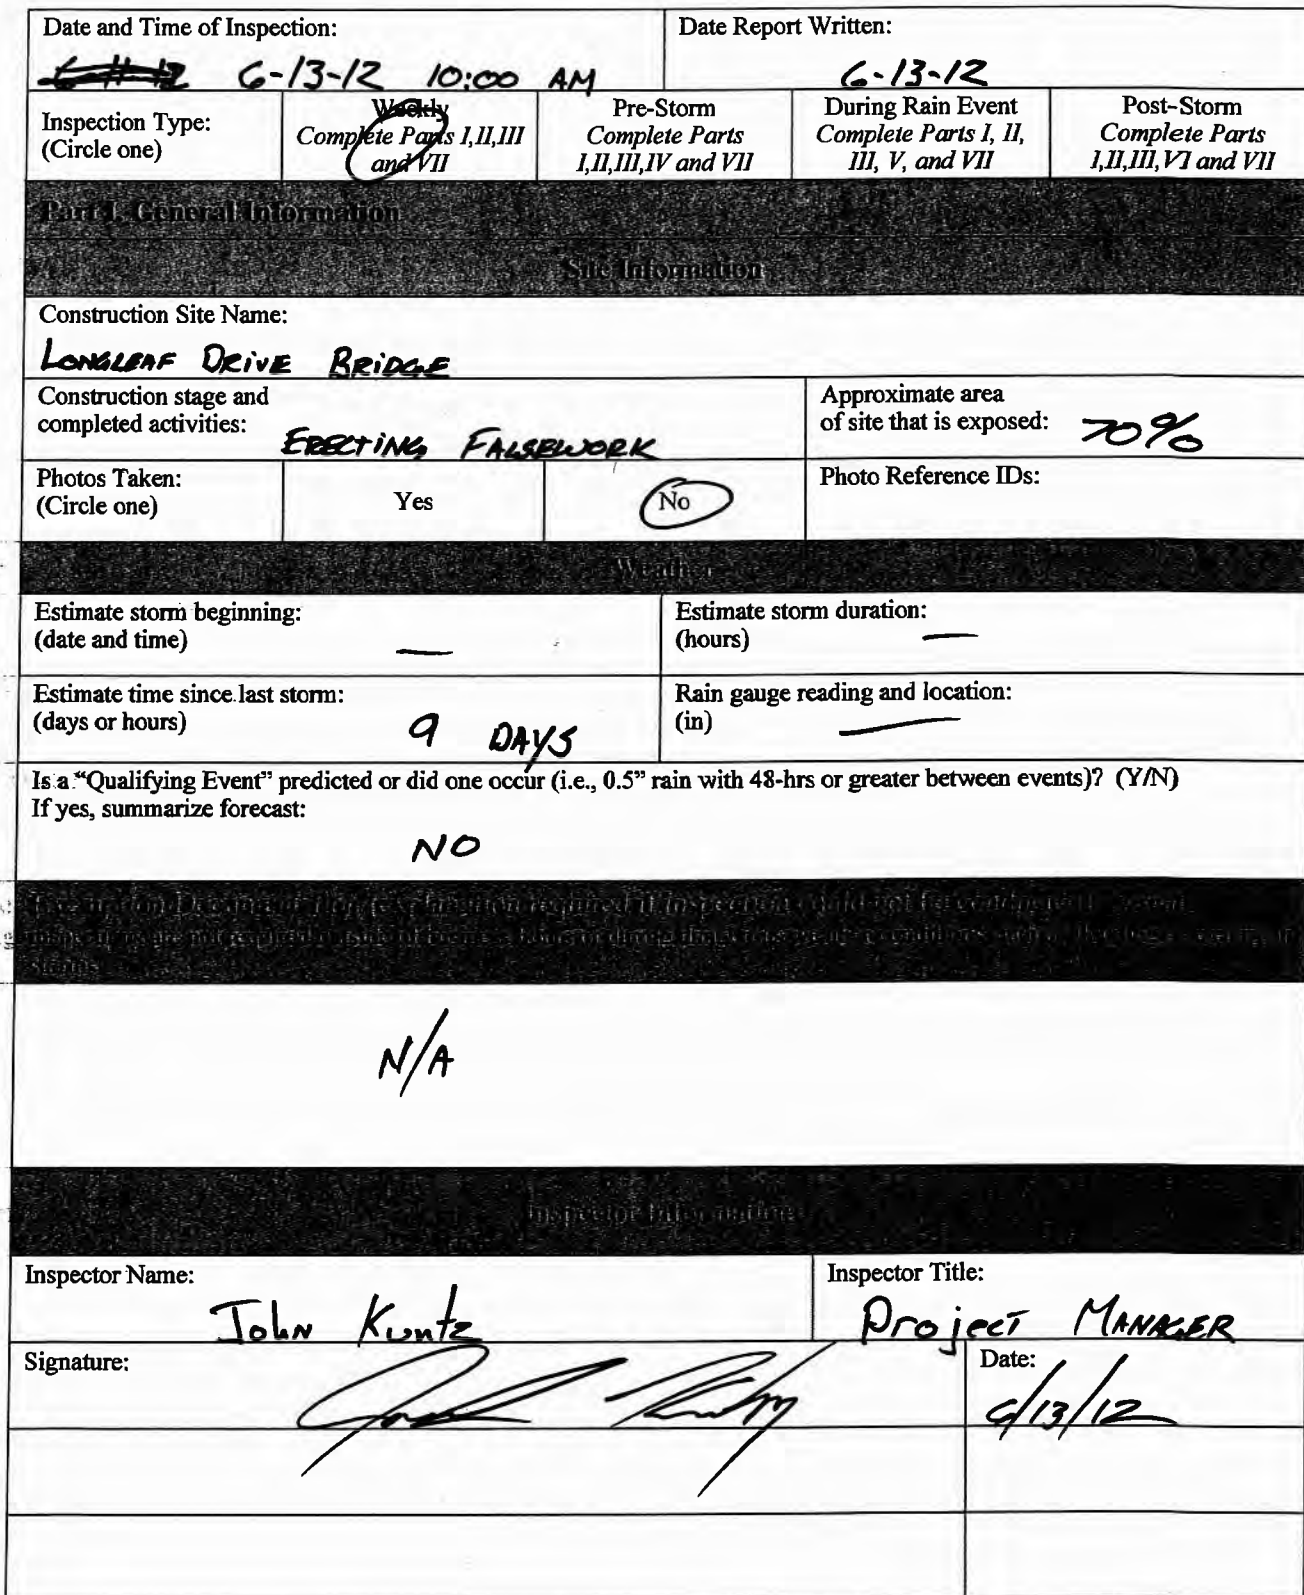 Date and Time of Inspection:
6-13-12 10:00 AM
Date Report Written:
6-13-12
Inspection Type:
(Circle one)
Weekly
Complete Parts I,II,III
and VII
Pre-Storm
Complete Parts
I,II,III,IV and VII
During Rain Event
Complete Parts I, II,
III, V, and VII
Post-Storm
Complete Parts
I,II,III,VI and VII
Part I. General Information
Site Information
Construction Site Name:
LONGLEAF DRIVE BRIDGE
Construction stage and
completed activities:
ERECTING FALSEWORK
Approximate area
of site that is exposed:
70%
Photos Taken:
(Circle one)
Yes
No
Photo Reference IDs:
Weather
Estimate storm beginning:
(date and time)
—
Estimate storm duration:
(hours)
—
Estimate time since last storm:
(days or hours)
9 DAYS
Rain gauge reading and location:
(in)
—
Is a "Qualifying Event" predicted or did one occur (i.e., 0.5" rain with 48-hrs or greater between events)? (Y/N)
If yes, summarize forecast:
NO
N/A
Inspector Information
Inspector Name:
John Kuntz
Inspector Title:
Project MANAGER
Signature:
Date:
6/13/12